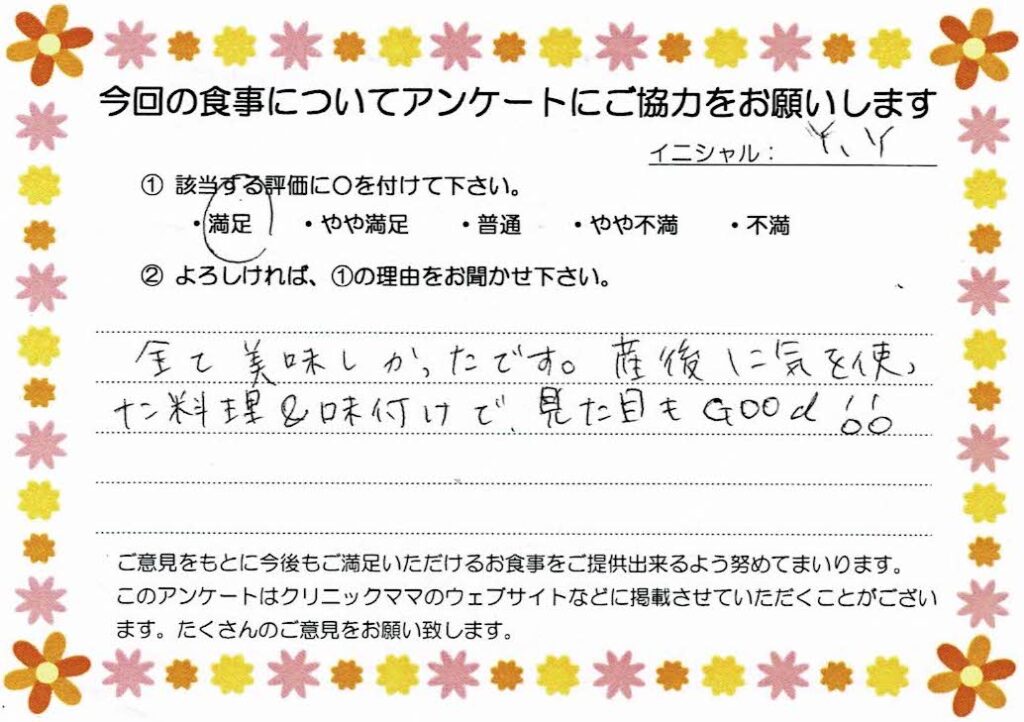 今回の食事についてアンケートにご協力をお願いします
イニシャル： Y、Y
① 該当する評価に〇を付けて下さい。
・満足 ・やや満足 ・普通 ・やや不満 ・不満
② よろしければ、①の理由をお聞かせ下さい。
全て美味しかったです。産後に気を使っ
た料理&味付けで、見た目もGOOd!!
ご意見をもとに今後もご満足いただけるお食事をご提供出来るよう努めてまいります。
このアンケートはクリニックママのウェブサイトなどに掲載させていただくことがござい
ます。たくさんのご意見をお願い致します。